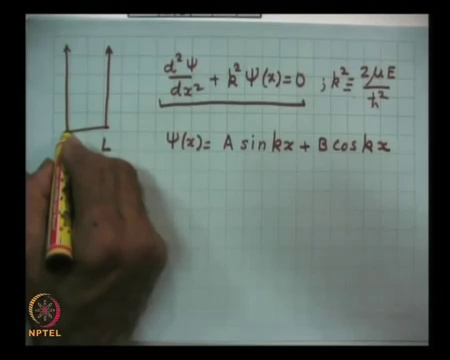 d²Ψ/dx² + k²Ψ(x)=0 ; k² ≡ 2μE/ħ²
L
Ψ(x)= A sin kx + B cos kx
NPTEL